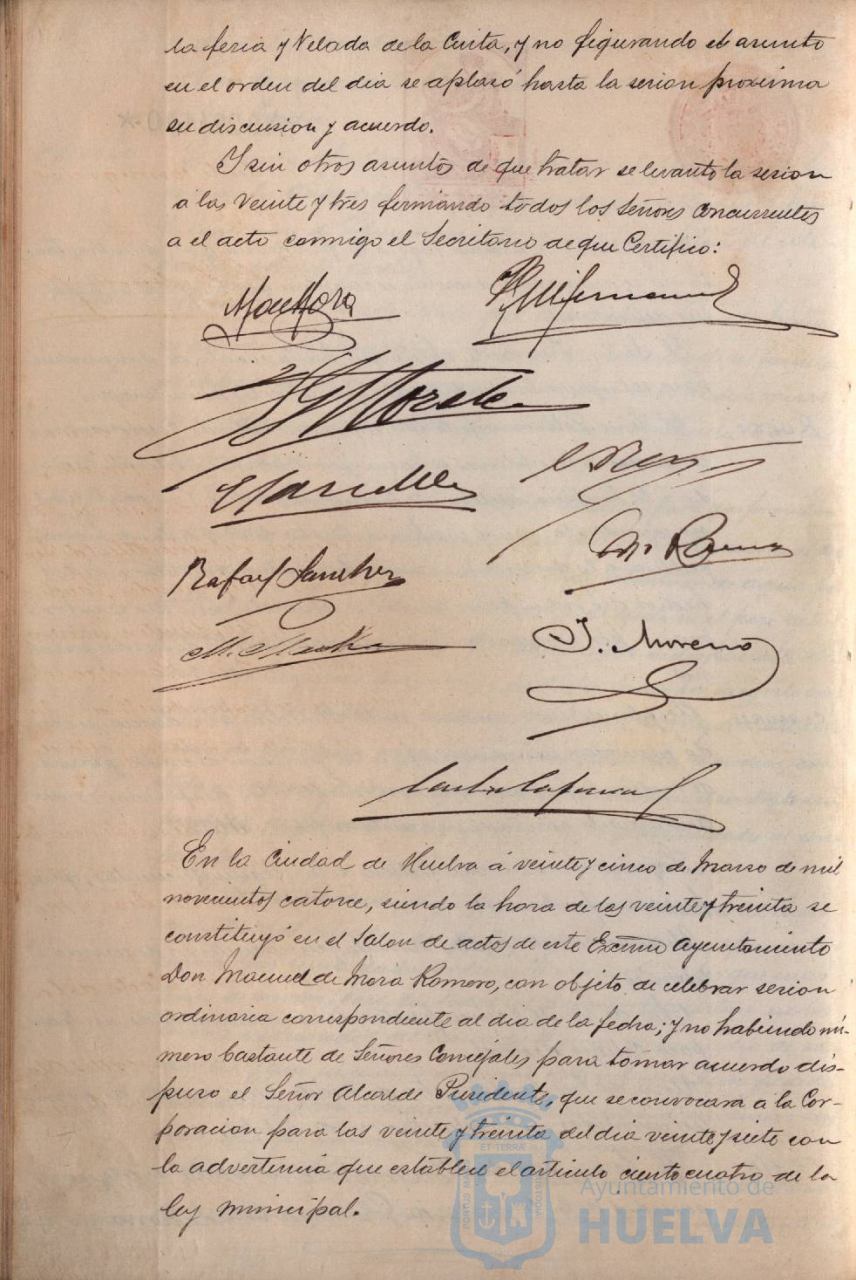 la feria y Velada de la Cinta, y no figurando el asunto
en el orden del dia se aplasó hasta la sesion proxima
su discusion y acuerdo.
Y sin otros asuntos de que tratar se levanto la sesion
a las veinte y tres firmando todos los Señores Concurrentes
a el acto conmigo el Secretario de que Certifico:
Rafael Sanchez
J. Moreno
En la Ciudad de Huelva á veinte y cinco de Marzo de mil
novecientos catorce, siendo la hora de las veinte y treinta se
constituyó en el Salon de actos de este Excmo Ayuntamiento
Don Manuel de Mora Romero, con objeto de celebrar sesion
ordinaria correspondiente al dia de la fecha; y no habiendo nú-
mero bastante de Señores Concejales para tomar acuerdo dis-
puso el Señor Alcalde Presidente, que se convocara a la Cor-
poracion para las veinte y treinta del dia veinte y siete con
la advertencia que establece el articulo ciento cuatro de la
ley municipal.
Ayuntamiento de
HUELVA